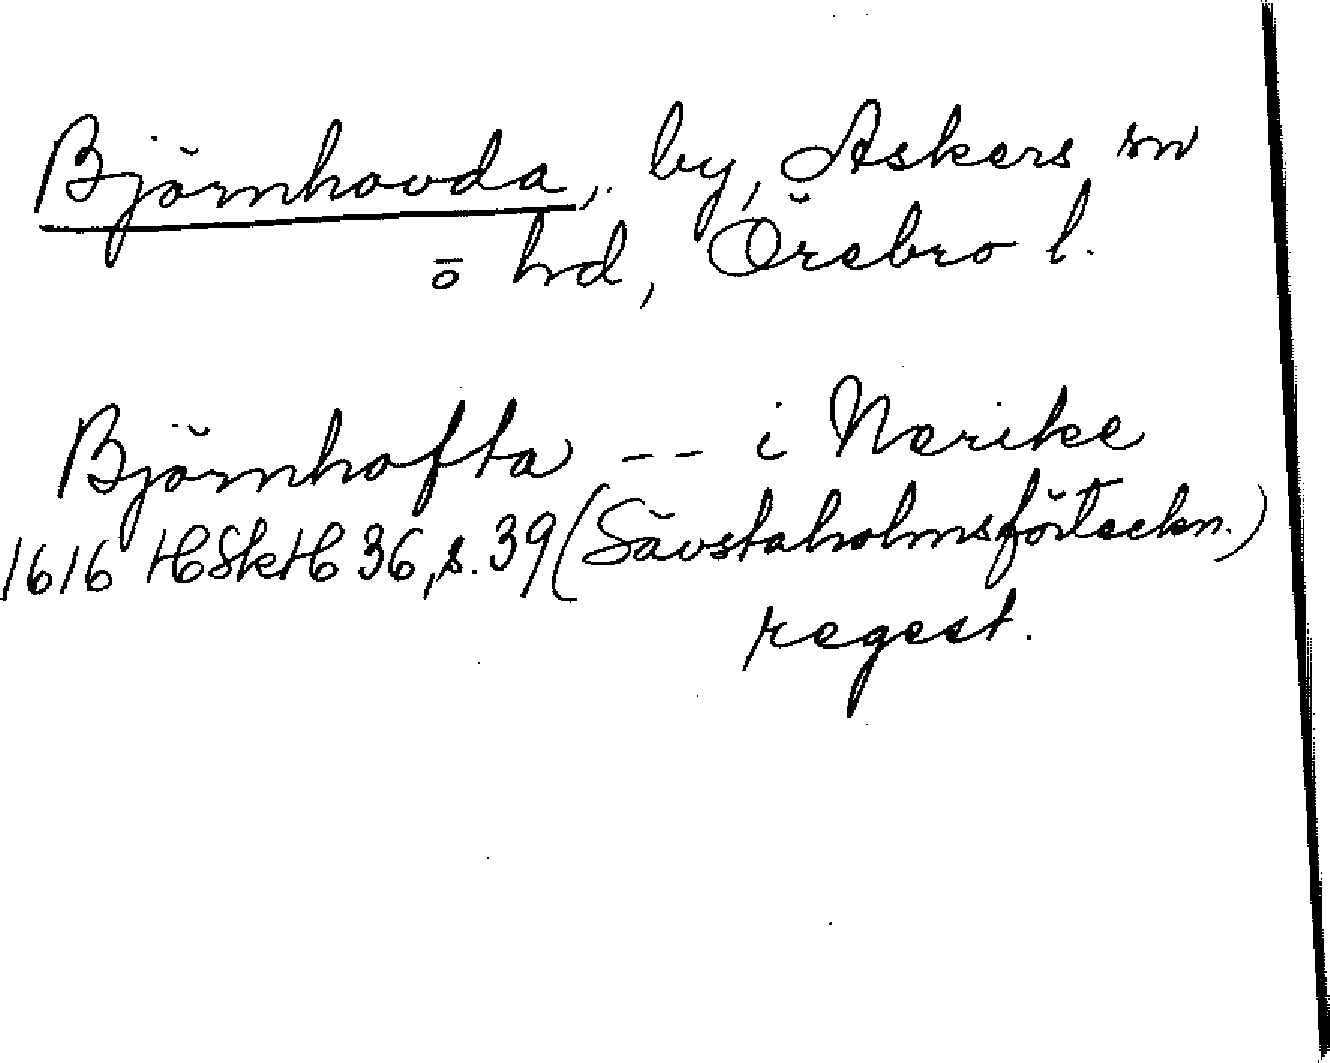 Björnhovda, by, Askers sn
ö hd, Örebro l.
Björnhofta -- i Nerike
1616 HSkH 36, s. 39 (Sävstaholmsförteckn.)
regest.